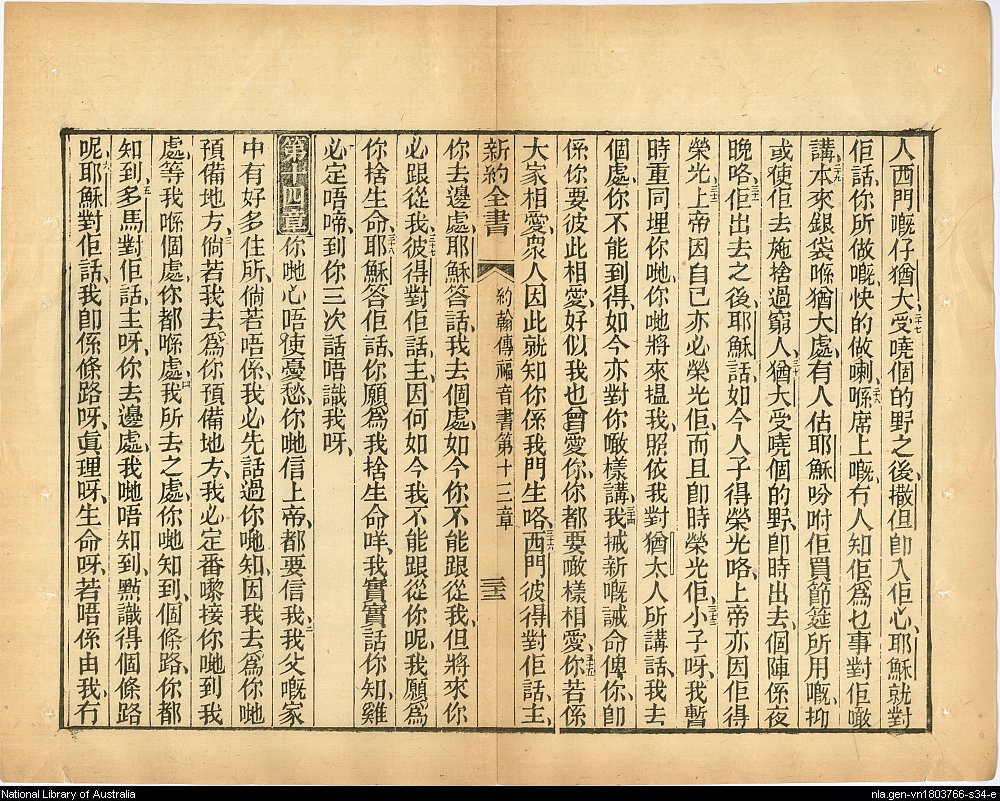 人西門嘅仔猶大、二十七受嘵個的野之後、撒但卽入佢心、耶穌就對
佢話、你所做嘅、快的做喇、二十八喺席上嘅、冇人知佢爲乜事對佢噉
講、二十九本來銀袋喺猶大處、有人估耶穌吩咐佢買節筵所用嘅、抑
或使佢去施捨過窮人、三十猶大受嘵個的野、卽時出去、個陣係夜
晚咯、三十一佢出去之後、耶穌話、如今人子得榮光咯、上帝亦因佢得
榮光、三十二上帝因自己亦必榮光佢、而且卽時榮光佢、三十三小子呀、我暫
時重同埋你哋、你哋將來搵我、照依我對猶太人所講話、我去
個處、你不能到得、如今亦對你噉樣講、三十四我械新嘅誡命俾你、卽
係你要彼此相愛、好似我也曾愛你、你都要噉樣相愛、三十五你若係
大家相愛、衆人因此就知你係我門生咯、三十六西門彼得對佢話、主、
新約全書 約翰傳福音書第十三章 三十三
你去邊處、耶穌答話、我去個處、如今你不能跟從我、但將來你
必跟從我、三十七彼得對佢話、主、因何如今我不能跟從你呢、我願爲
你捨生命、三十八耶穌答佢話、你願爲我捨生命咩、我實實話你知、雞
必定唔啼、到你三次話唔識我呀、
第十四章 你哋心唔使憂愁、你哋信上帝、都要信我、二我父嘅家
中有好多住所、倘若唔係、我必先話過你哋知、因我去、爲你哋
預備地方、三倘若我去、爲你預備地方、我必定番嚟接你哋到我
處、等我喺個處、你都喺處、四我所去之處、你哋知到、個條路、你都
知到、五多馬對佢話、主呀、你去邊處、我哋唔知到、點識得個條路
呢、六耶穌對佢話、我卽係條路呀、眞理呀、生命呀、若唔係由我、冇
National Library of Australia
nla.gen-vn1803766-s34-e